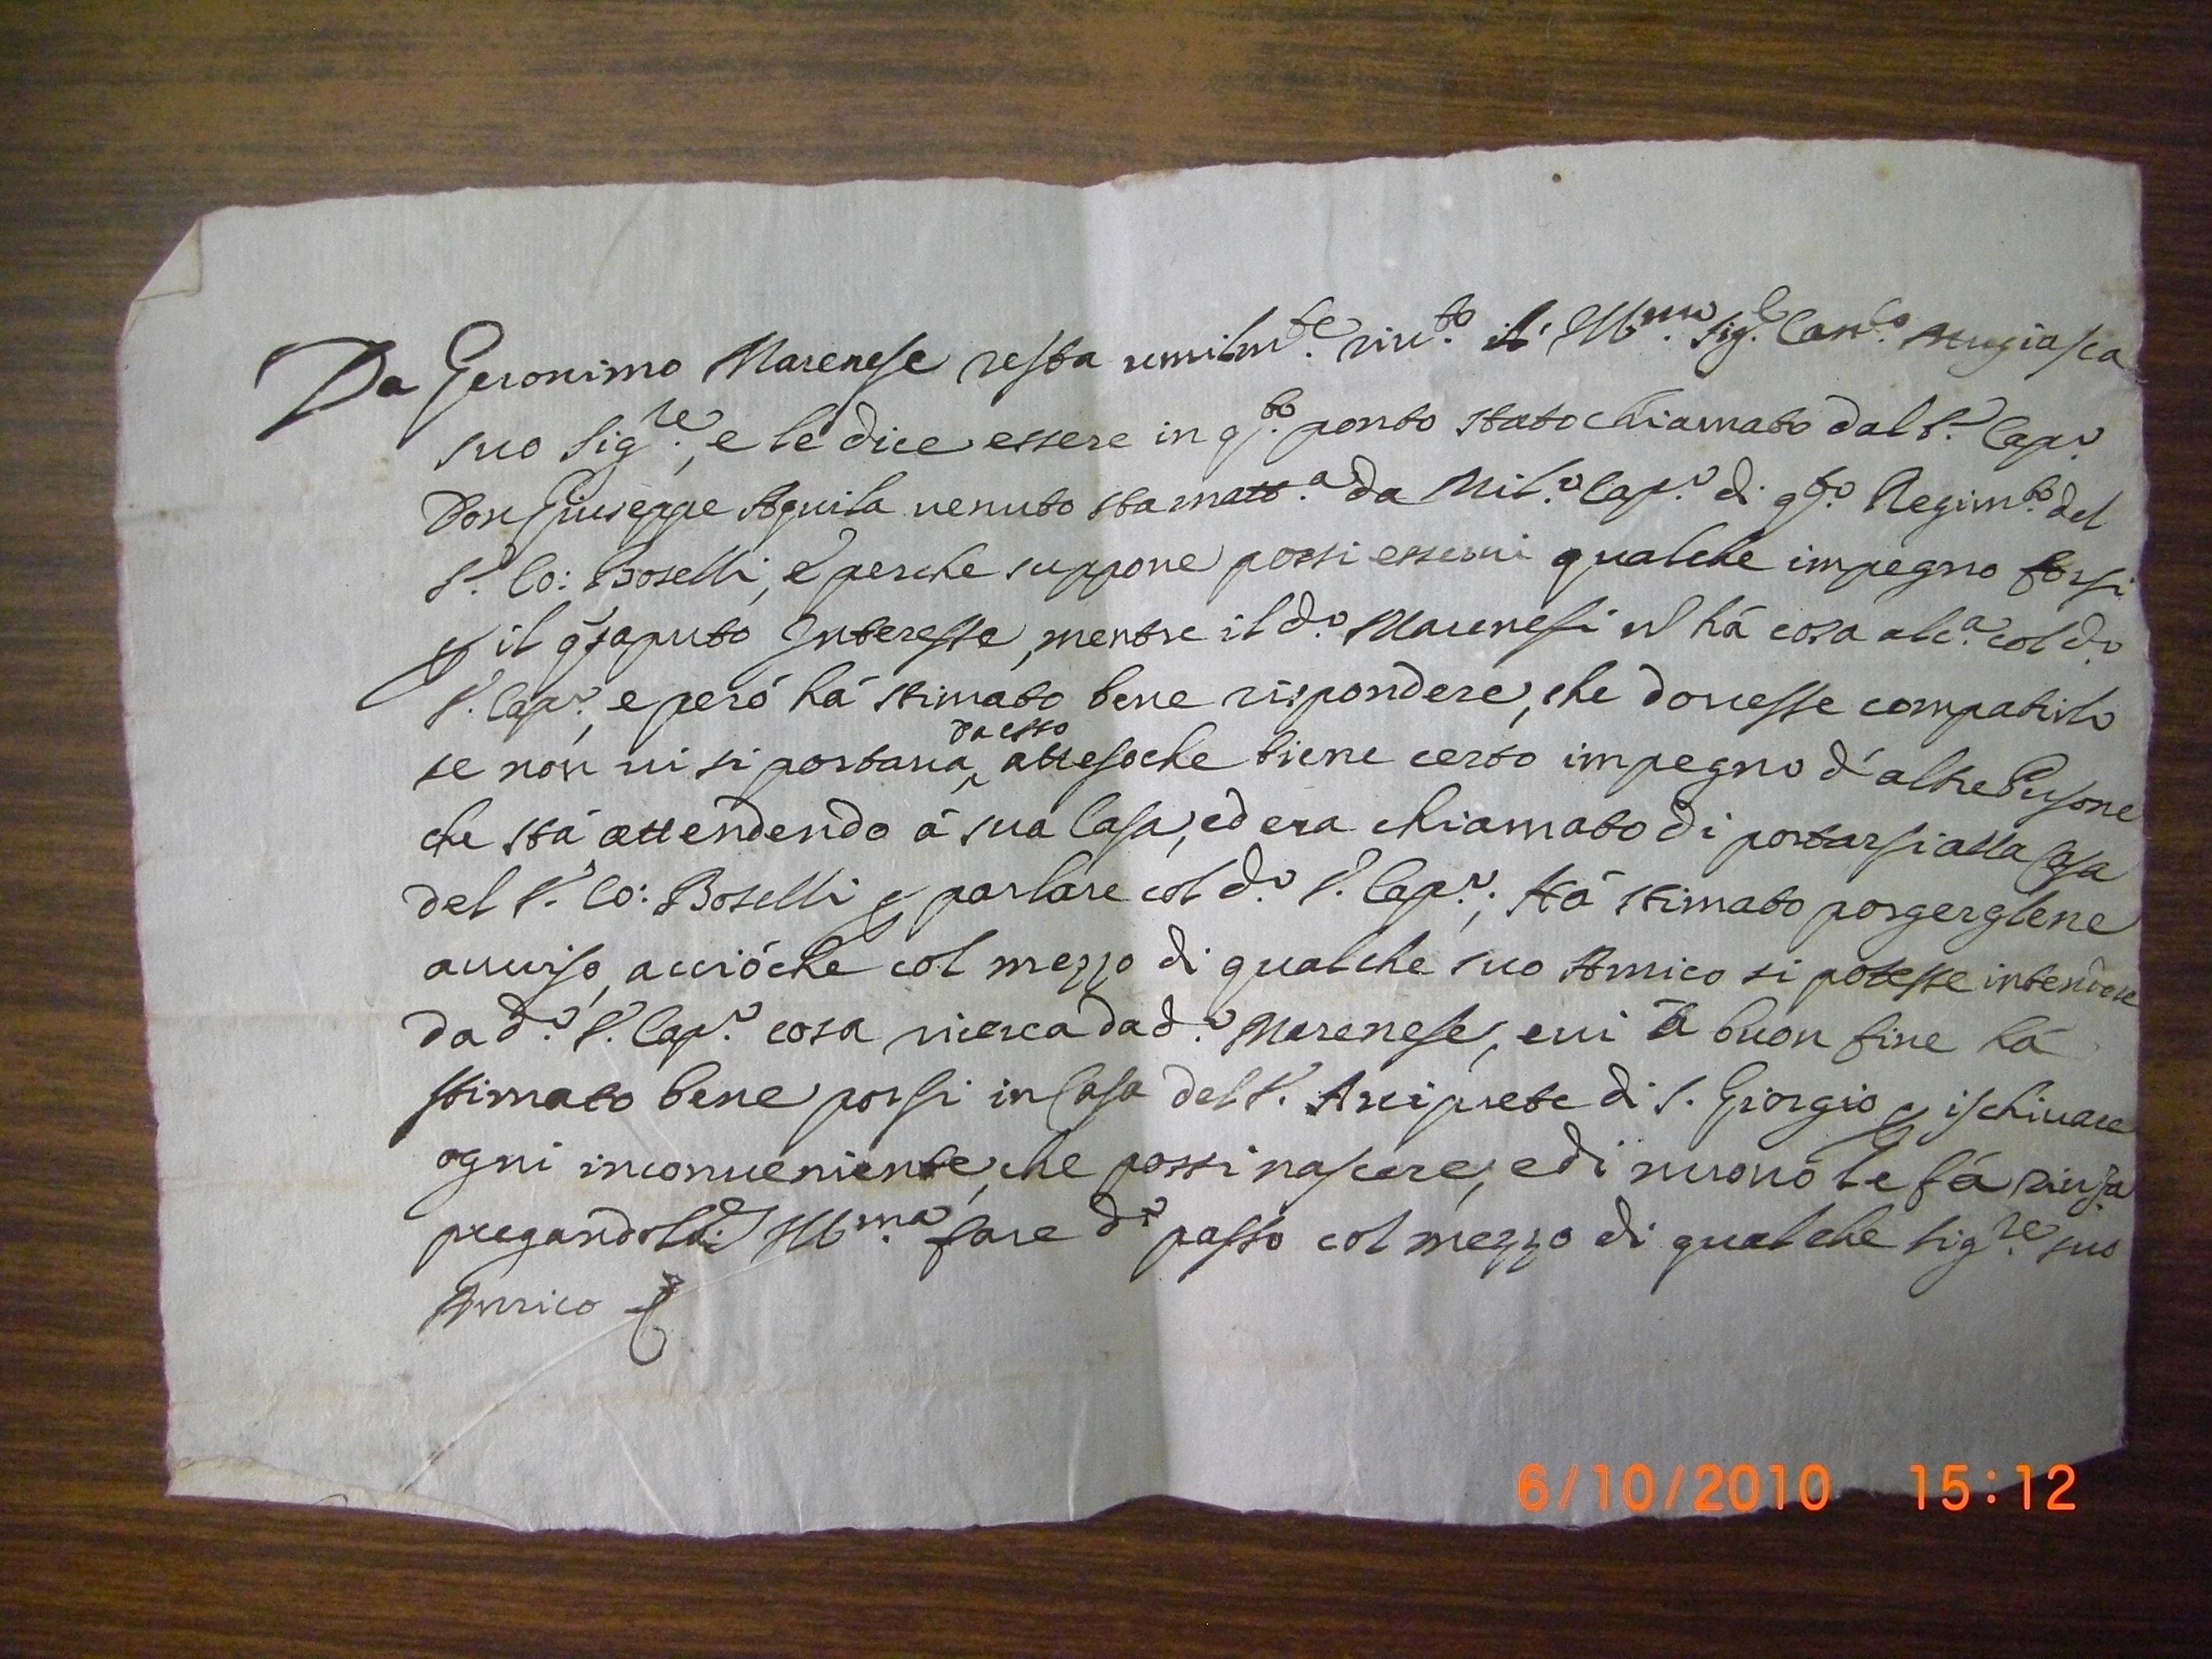 Da Geronimo Marenese resta umilm.te riu.to il Ill.mo Sig.r Can.co Mugiasca
suo Sig.re, e le dice essere in q.to ponto stato chiamato dal S.r Cap.o
Don Giuseppe Aquila venuto stamatt.a da Mil.o Cap.o di q.to Regim.to del
S.r Co: Boselli, e perche suppone possi esserui qualche impegno forsi
p il saputo Interesse, mentre il d.o Marenesi n hà cosa alc.a col d.o
S.r Cap.o, e però hà stimato bene rispondere, che douesse compatirlo
se non ui si portaua da esso attesoche tiene certo impegno d'altre Persone
che stà attendendo à sua Casa, ed era chiamato di portarsi alla Casa
del S.r Co: Boselli p parlare col d.o S.r Cap.o; Hà stimato porgerglene
auuiso, acciòche col mezzo di qualche suo Amico si potesse intendere
da d.o S.r Cap.o cosa ricerca da d.o Marenese, e ui à buon fine hà
stimato bene porsi in Casa del S.r Arciprete di S. Giorgio p ischiuare
ogni inconueniente, che possi nascere, e di nuouo le fà riu.za
pregando Ill.ma fare d.o passo col mezzo di qualche Sig.re suo
Amico
6/10/2010 15:12